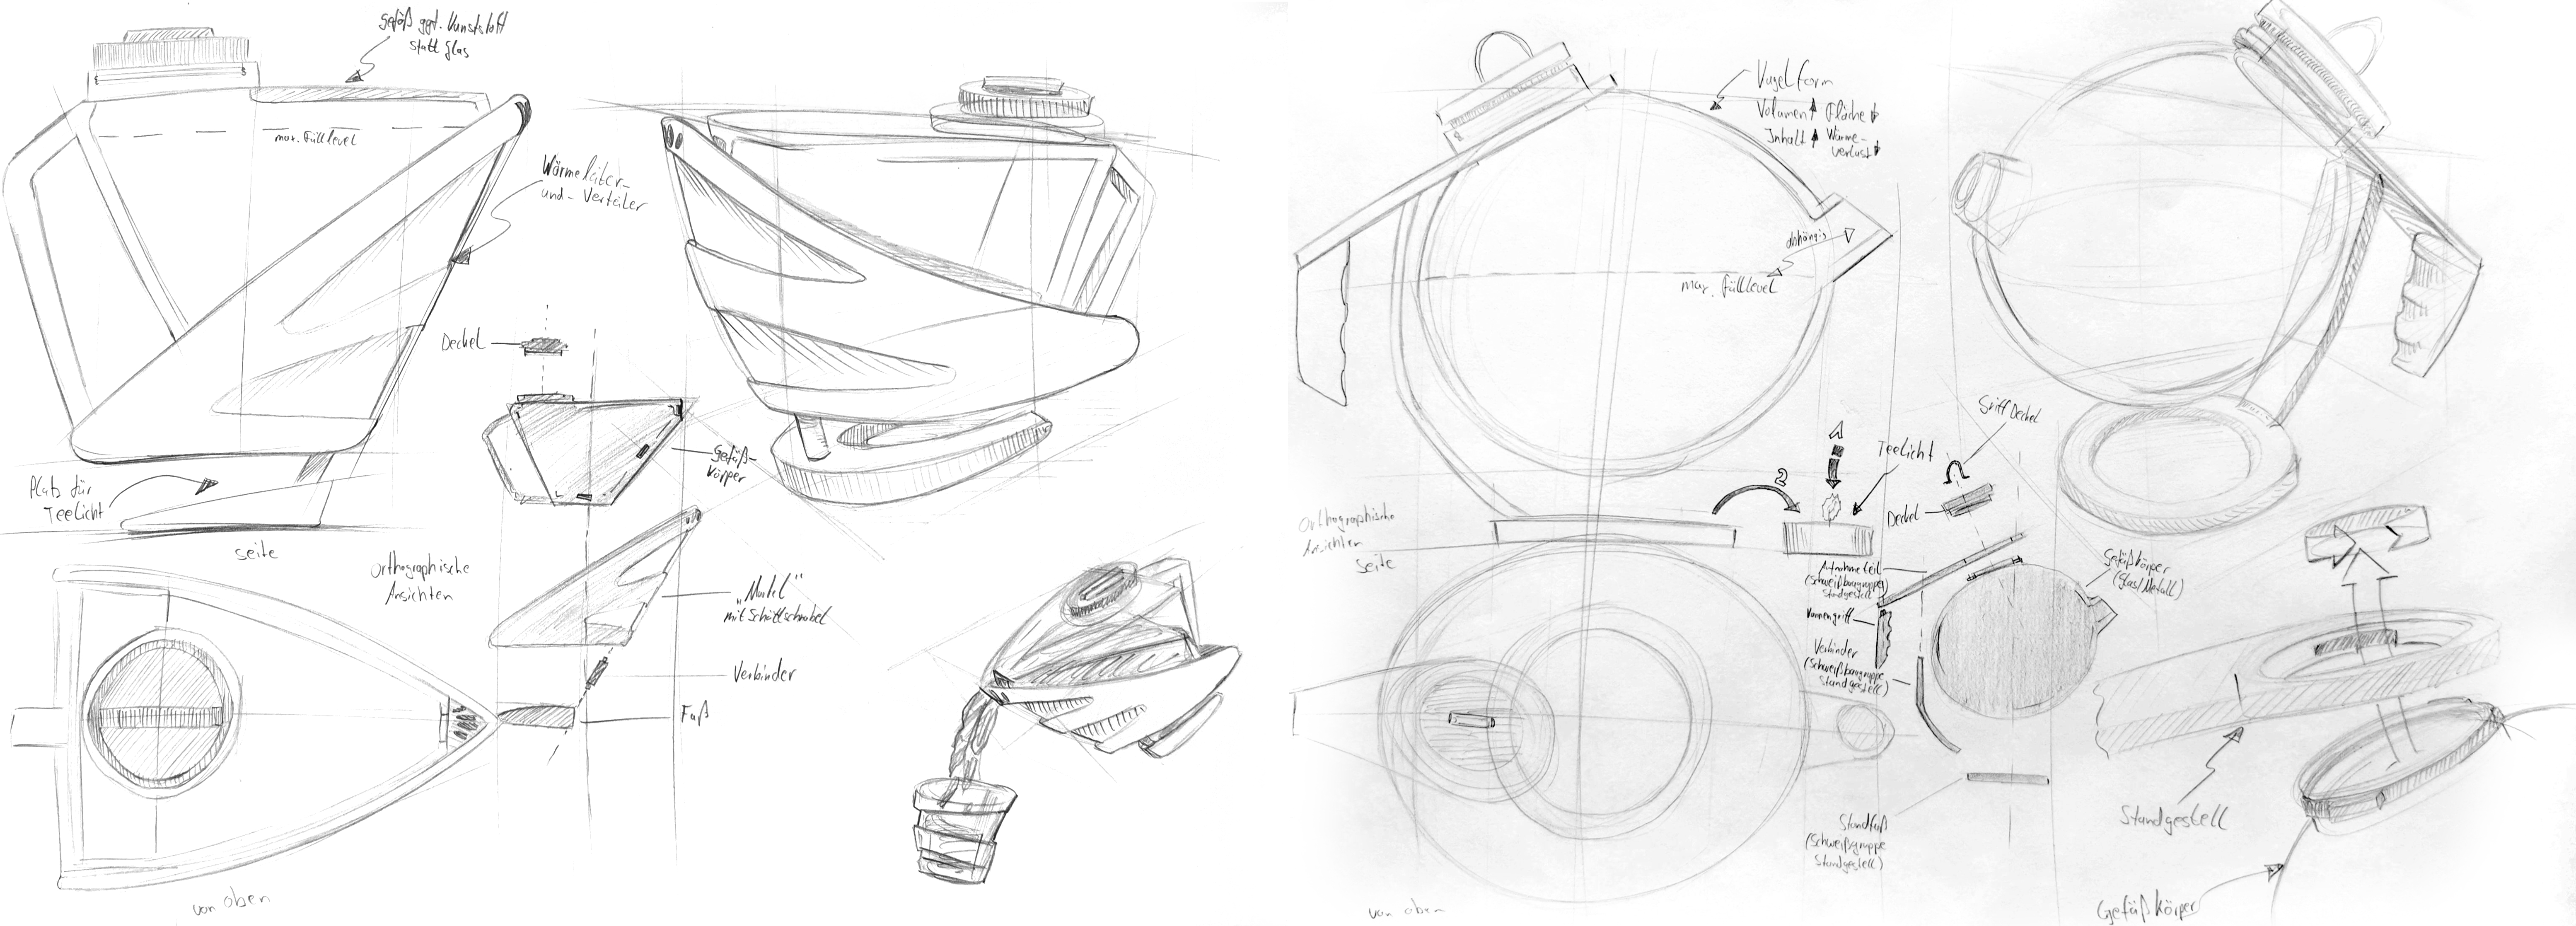 Gefäß ggf. Kunststoff
statt Glas
max. Fülllevel
Wärmeleiter-
und- Verteiler
Platz für
Teelicht
seite
Orthographische
Ansichten
von oben
Deckel
Gefäß-
körper
„Mantel"
mit Schüttschnabel
Verbinder
Fuß
Kugelform
Volumen Fläche
Inhalt Wärme-
verlust
abhängig
max. Fülllevel
Orthographische
Ansichten
seite
2
1
Teelicht
Griff Deckel
Deckel
Gefäßkörper
(Glas/Metall)
Aufnahmeteil
(Schweißbaugruppe
Standgestell)
Kannengriff
Verbinder
(Schweißbaugruppe
Standgestell)
Standfuß
(Schweißgruppe
Standgestell)
von oben
Standgestell
Gefäßkörper